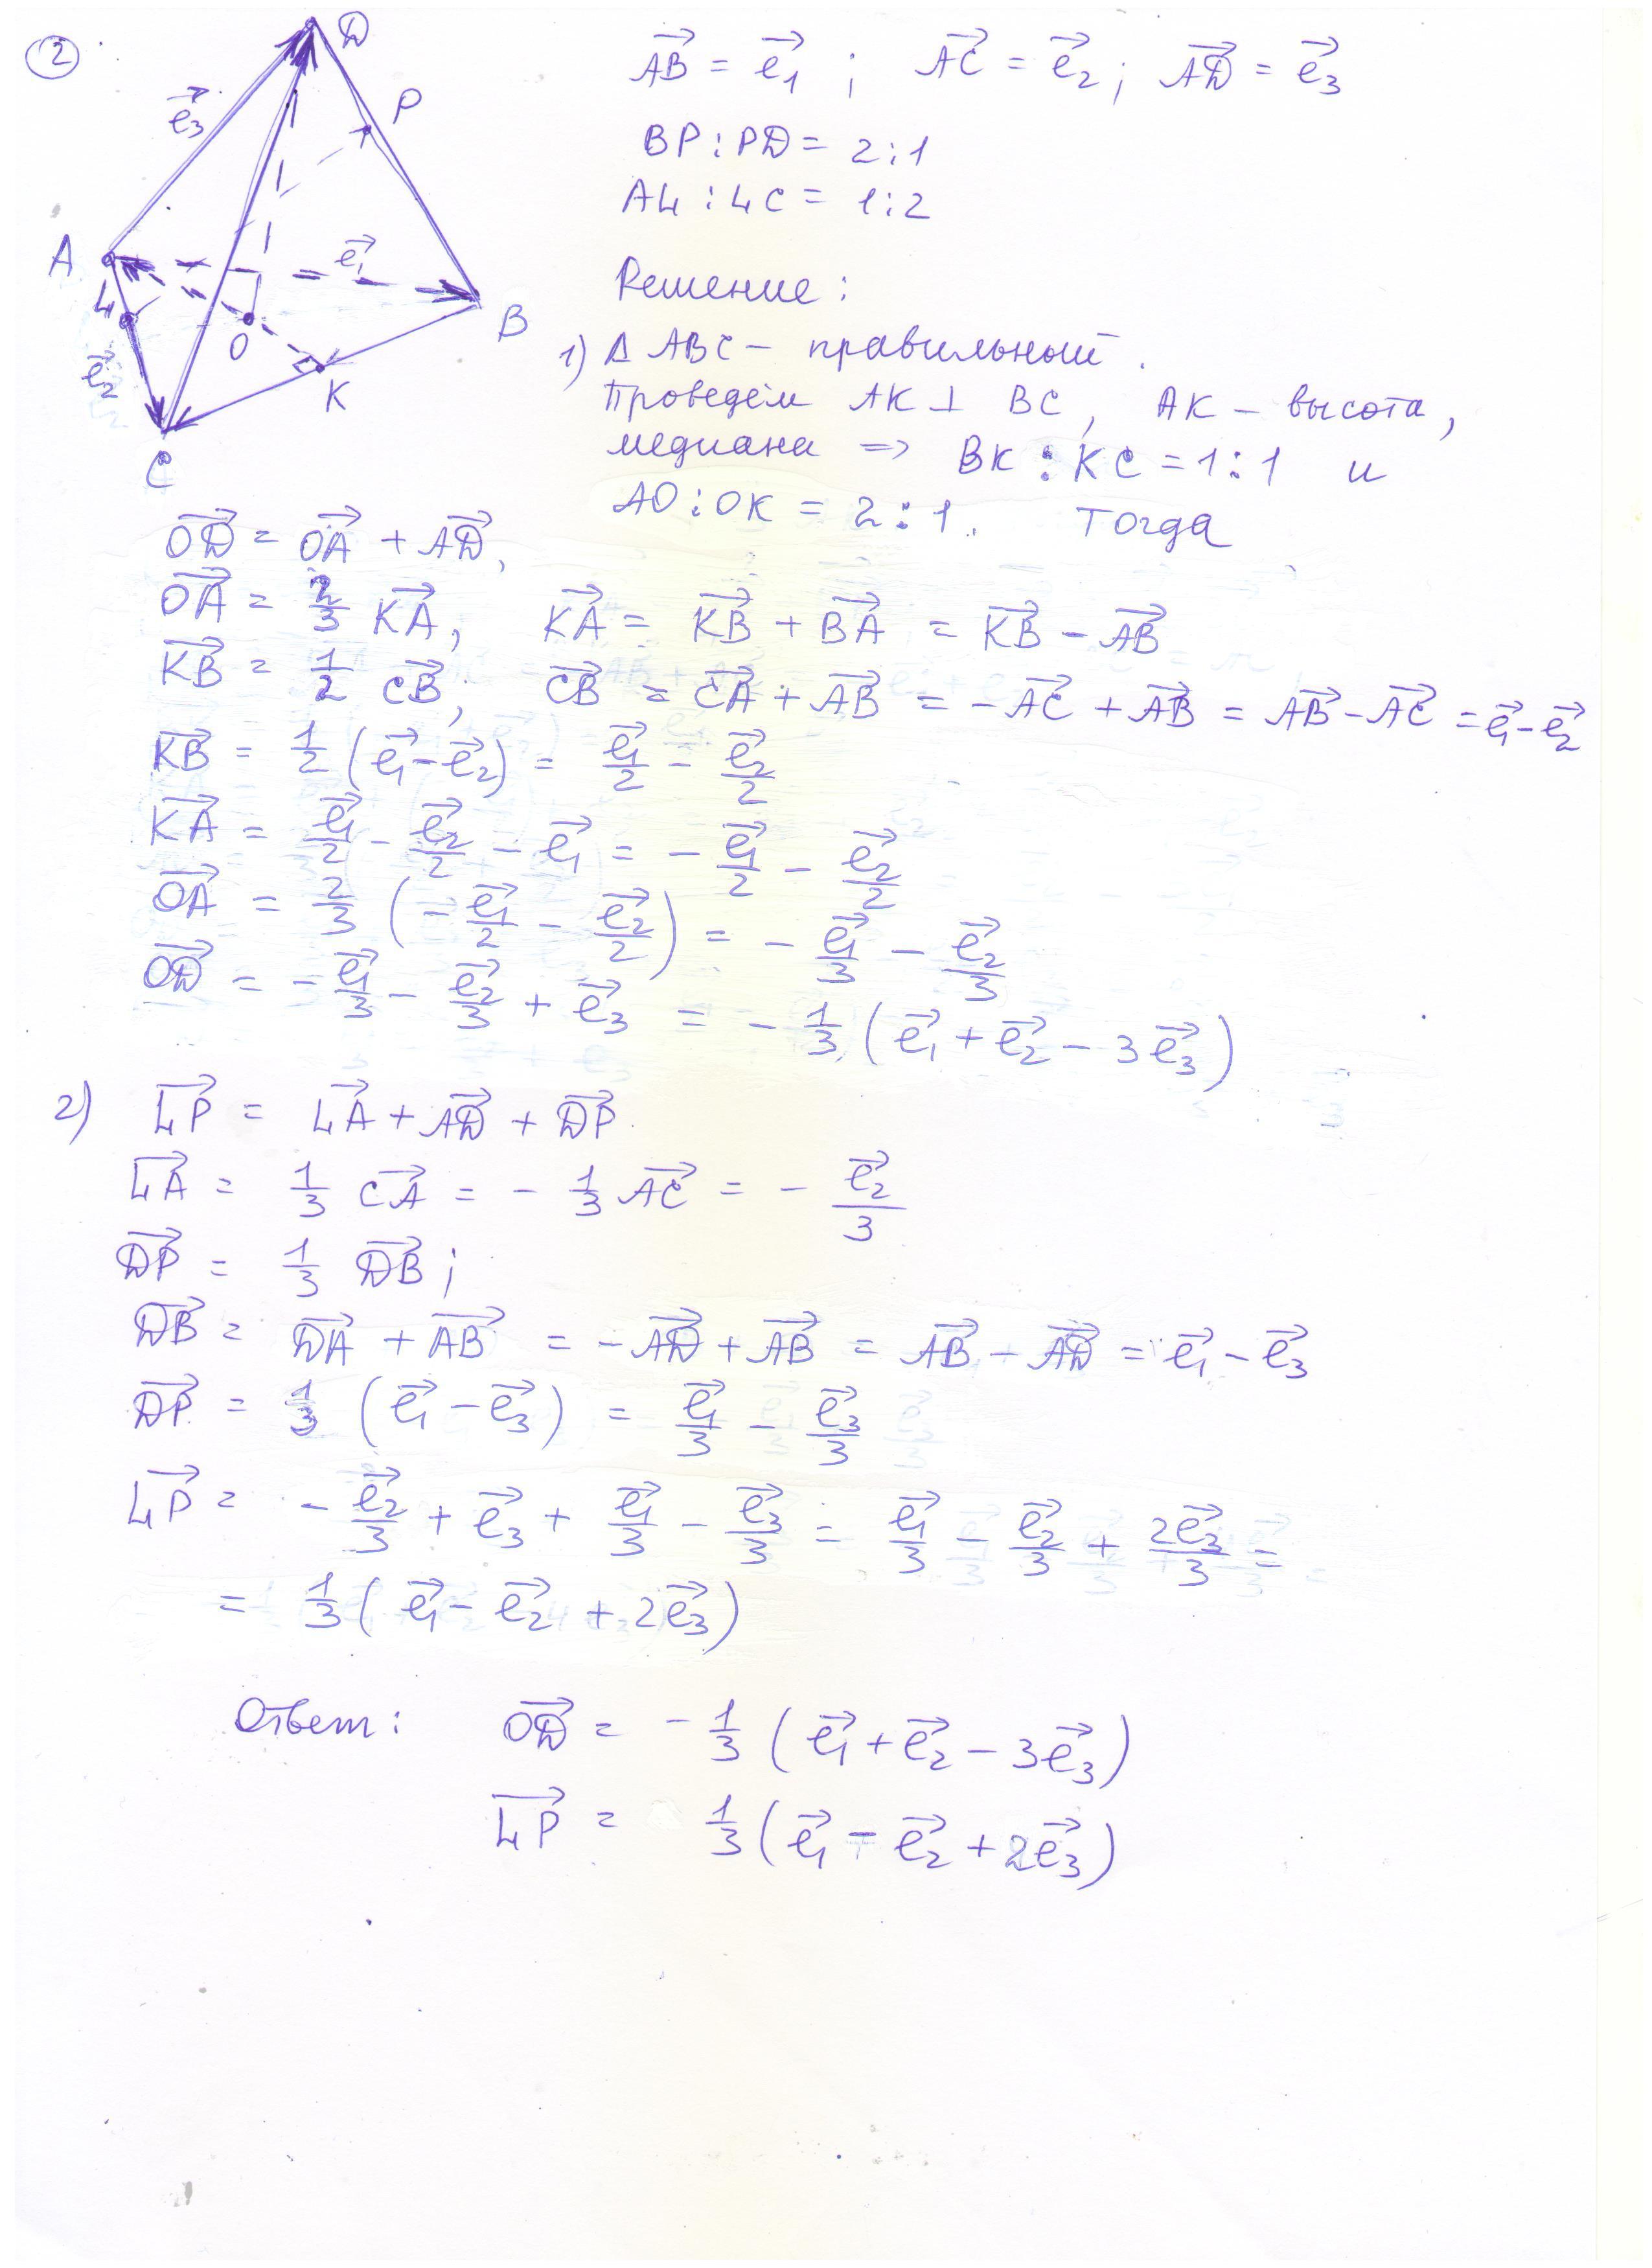 2
D
P
e⃗₃
A
e⃗₁
L
O
B
e⃗₂
K
C
AB⃗ = e⃗₁ ; AC⃗ = e⃗₂ ; AD⃗ = e⃗₃
BP : PD = 2 : 1
AL : LC = 1 : 2
Решение :
1) Δ ABC – правильный.
Проведём AK ⊥ BC, AK – высота,
медиана => BK : KC = 1 : 1 и
AO : OK = 2 : 1. Тогда
OD⃗ = OA⃗ + AD⃗,
OA⃗ = 2/3 KA⃗, KA⃗ = KB⃗ + BA⃗ = KB⃗ − AB⃗
KB⃗ = 1/2 CB⃗; CB⃗ = CA⃗ + AB⃗ = −AC⃗ + AB⃗ = AB⃗ − AC⃗ = e⃗₁ − e⃗₂
KB⃗ = 1/2 (e⃗₁ − e⃗₂) = e⃗₁/2 − e⃗₂/2
KA⃗ = e⃗₁/2 − e⃗₂/2 − e⃗₁ = − e⃗₁/2 − e⃗₂/2
OA⃗ = 2/3 (− e⃗₁/2 − e⃗₂/2) = − e⃗₁/3 − e⃗₂/3
OD⃗ = − e⃗₁/3 − e⃗₂/3 + e⃗₃ = − 1/3 (e⃗₁ + e⃗₂ − 3e⃗₃)
2) LP⃗ = LA⃗ + AD⃗ + DP⃗
LA⃗ = 1/3 CA⃗ = − 1/3 AC⃗ = − e⃗₂/3
DP⃗ = 1/3 DB⃗ ;
DB⃗ = DA⃗ + AB⃗ = −AD⃗ + AB⃗ = AB⃗ − AD⃗ = e⃗₁ − e⃗₃
DP⃗ = 1/3 (e⃗₁ − e⃗₃) = e⃗₁/3 − e⃗₃/3
LP⃗ = − e⃗₂/3 + e⃗₃ + e⃗₁/3 − e⃗₃/3 = e⃗₁/3 − e⃗₂/3 + 2e⃗₃/3 =
= 1/3 (e⃗₁ − e⃗₂ + 2e⃗₃)
Ответ : OD⃗ = − 1/3 (e⃗₁ + e⃗₂ − 3e⃗₃)
LP⃗ = 1/3 (e⃗₁ − e⃗₂ + 2e⃗₃)